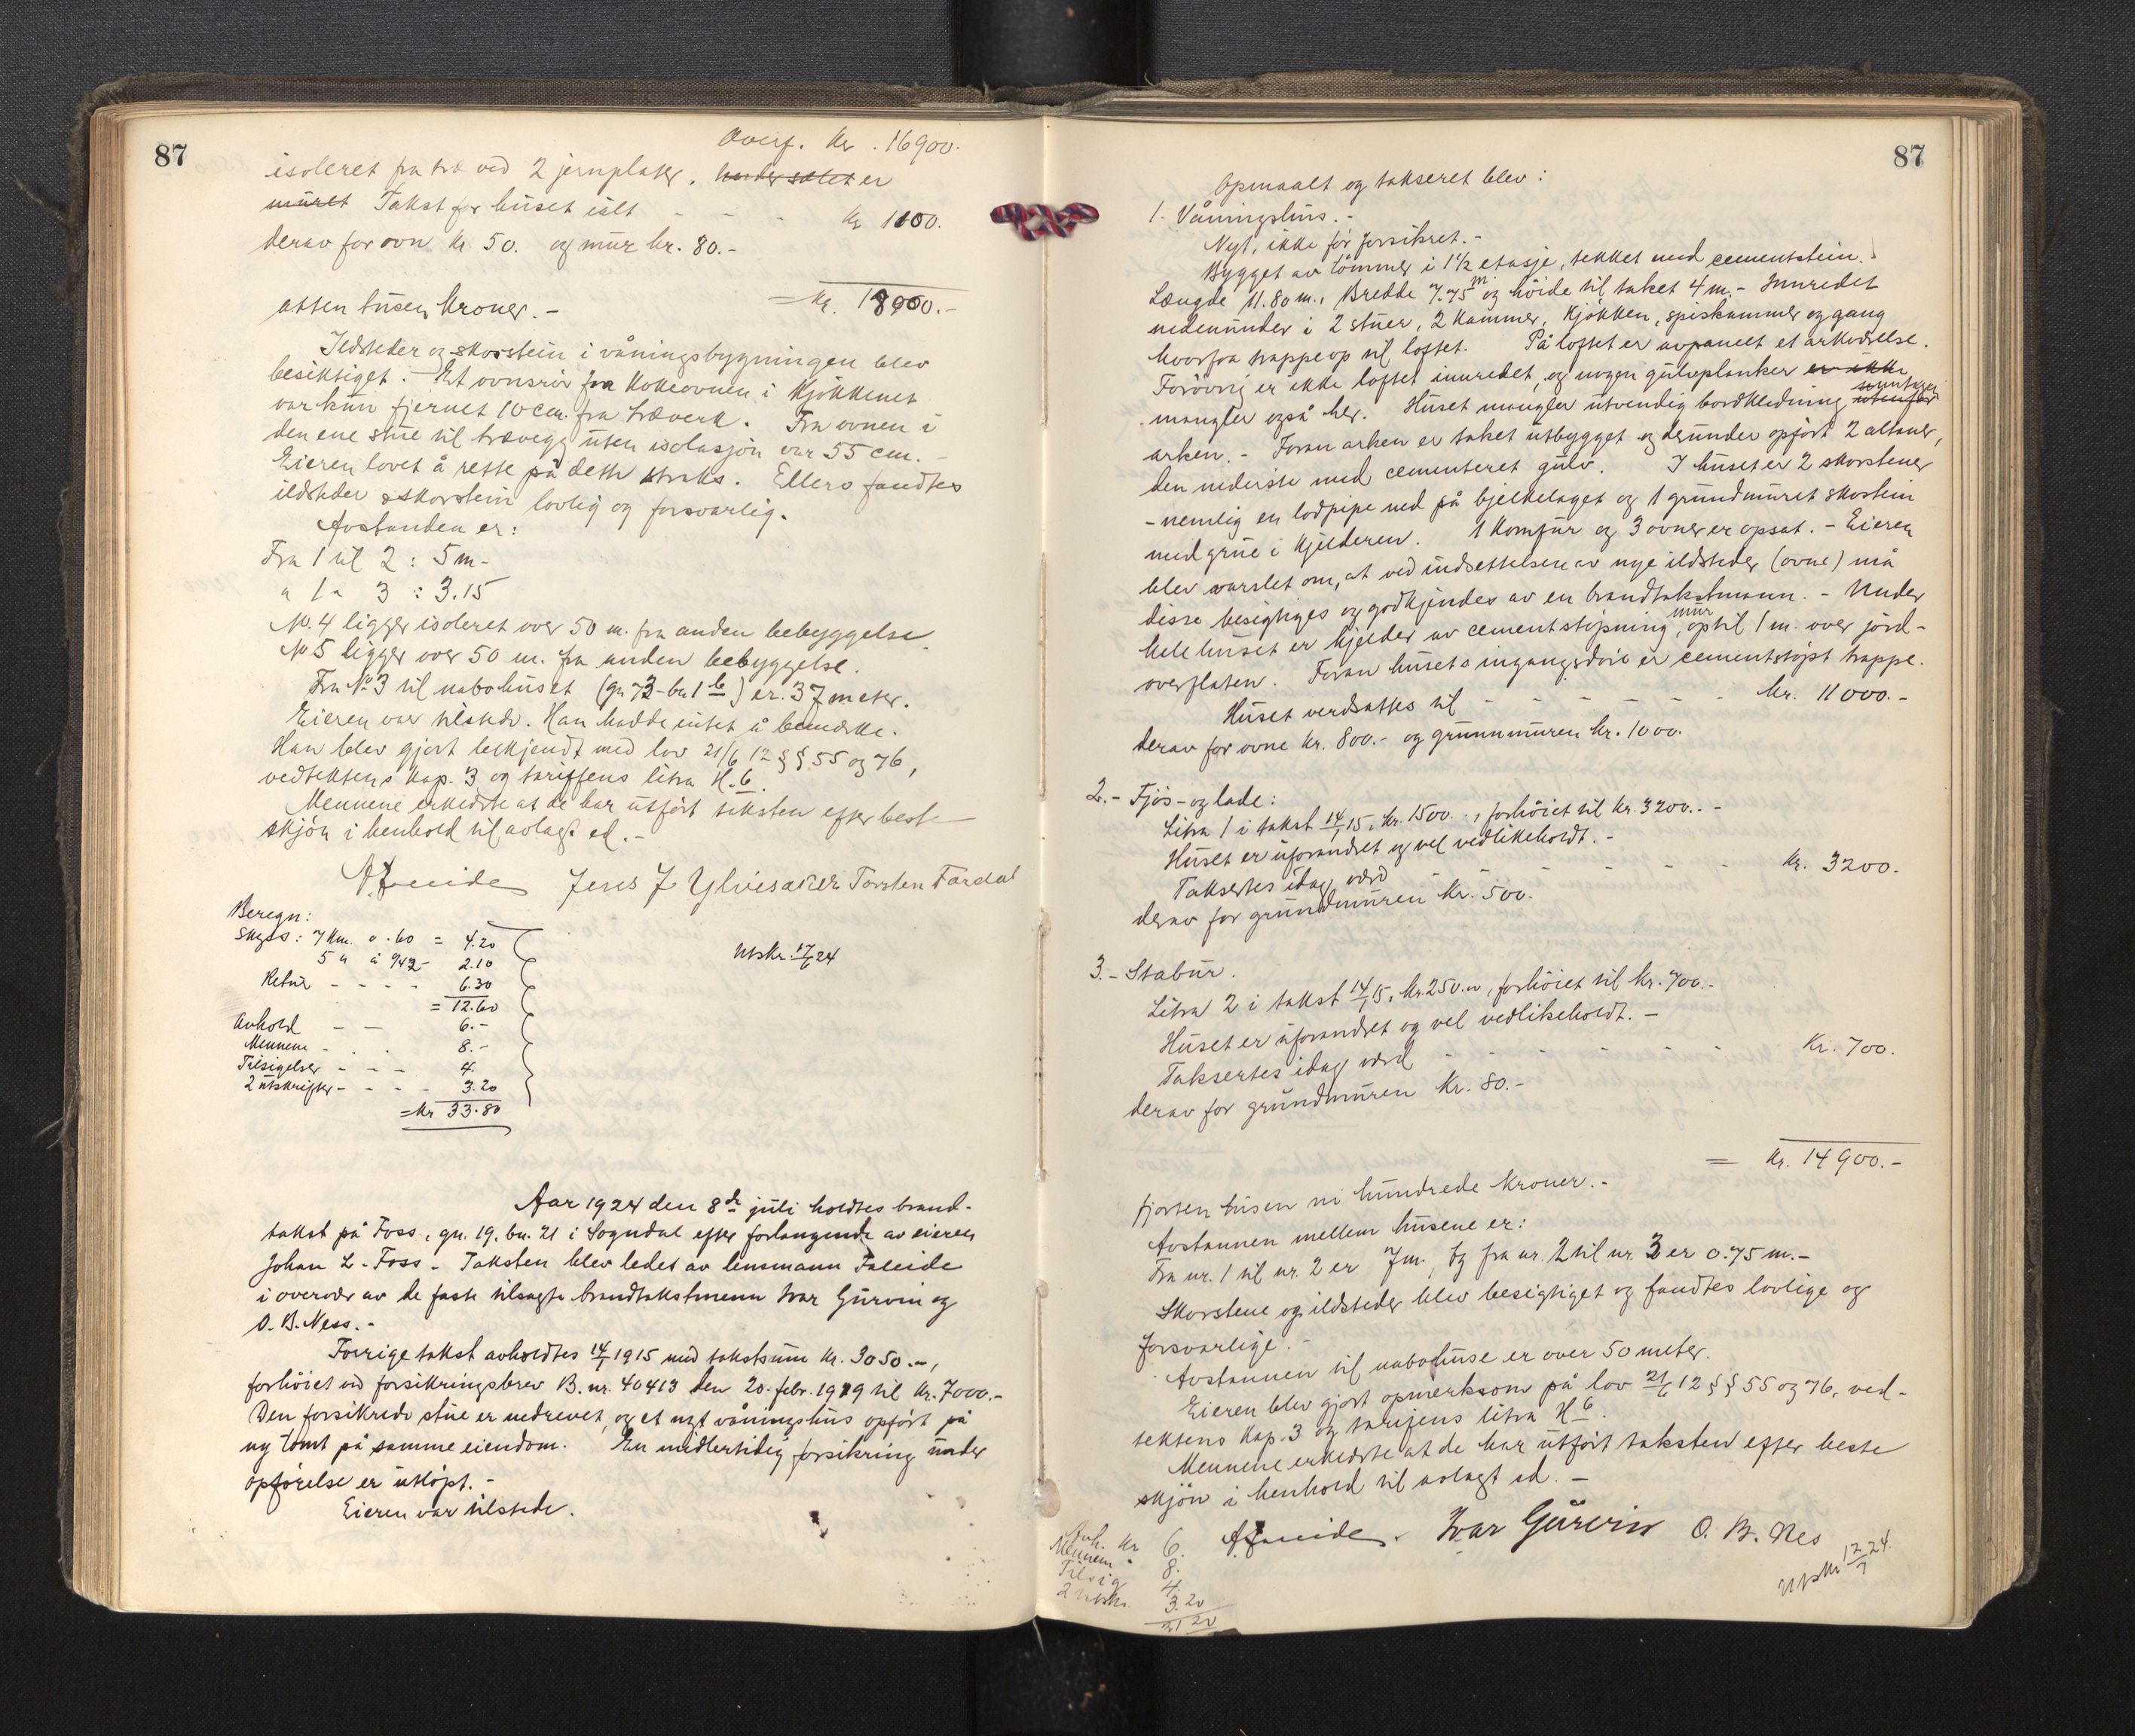 87
Overf. Kr. 16900.
isoleret fra træ ved 2 jernplater. Undersalet er
muret Takst for huset ialt - - - Kr 1100.
derav for ovn Kr 50. og mur kr. 80.-
atten tusen kroner.- = Kr. 18000.-
Ildsteder og skorstein i våningsbygningen blev
besiktiget. Et ovnsrör fra kokeovnen i kjökkenet
var kun fjernet 10 cm. fra træverk. Fra ovnen i
den ene stue til trævegg uten isolasjon var 55 cm. -
Eieren lovet å rette på dette straks. Ellers fandtes
ildsteder o skorstein lovlig og forsvarlig.
Avstanden er:
Fra 1 til 2 : 5 m-
" 1 " 3 : 3.15
No. 4 ligger isoleret over 50 m. fra anden bebyggelse.
No 5 ligger over 50 m. fra anden bebyggelse.
Fra No 3 til nabohuset (gn 73 - bn 1 b) er 37 meter.
Eieren var tilstede. Han hadde intet å bemærke.
Han blev gjort bekjendt med lov 21/6 12 §§ 55 og 76,
vedtektens kap. 3 og tariffens litra H. 6.
Mennene erklærte at de har utfört taksten efter beste
skjön i henhold til avlagt ed.-
A Faleide Jens J Ylvisaker Torsten Fardal
Beregn:
Skyss: 7 Km. a .60 = 4.20
5 " à 942- 2.10
Retur - - - - 6.30
= 12.60
Avhold - - 6.-
Mennene - . . 8.-
Tilsigelser - - - 4.
2 utskrifter - - - - 3.20
= Kr 33.80
Utskr. 17/6 24
Aar 1924 den 8de juli holdtes brand-
takst på Foss, gn. 19. bn. 21 i Sogndal efter forlangende av eieren
Johan L. Foss. Taksten blev ledet av lensmann Faleide
i overvær av de faste tilsagte brandtakstmenn Ivar Gurvin og
O. B. Ness.-
Forrige takst avholdtes 14/1 1915 med takstsum Kr. 3050.-,
forhöiet ved forsikringsbrev B. nr. 40413 den 20. febr. 1919 til Kr. 7000.-
Den forsikrede stue er nedrevet, og et nyt våningshus opfört på
ny tomt på samme eiendom. En midlertidig forsikring under
opförelse er utlöpt.-
Eieren var tilstede.
87
Opmaalt og takseret blev:
1. Våningshus.-
Nyt, ikke för forsikret.-
Bygget av tömmer i 1½ etasje, tekket med cementstein.
Længde 11.80 m., Bredde 7.75 m og höide til taket 4 m.- Innredet
nedenunder i 2 stuer, 2 kammer, kjökken, spiskammer og gang
hvorfra trappe op til loftet. På loftet er avpanelt et arkværelse.
Forövrig er ikke loftet innredet, og nogen gulvplanker er ikke
mangler også her. Huset mangler utvendig bordkledning undtagen
arken.- Foran arken er taket utbygget og derunder opfört 2 altaner,
den nederste med cementeret gulv. I huset er 2 skorstener
- nemlig en lodpipe ned på bjelkelaget og 1 grundmuret skorstein
med grue i kjelderen. 1 komfur og 3 ovner er opsat.- Eieren
blev varslet om, at ved indsettelsen av nye ildsteder (ovne) må
disse besigtiges og godkjendes av en brandtakstmann.- Under
hele huset er kjelder av cementstöpning mur, optil 1 m. over jord-
overflaten. Foran husets ingangsdör er cementstöpt trappe.
Huset verdsattes til - - - - - - Kr. 11000.-
derav for ovne kr. 800.- og grunnmuren kr. 1000.
2.- Fjös- og lade:
Litra 1 i takst 14/1 15, kr. 1500.-, forhöiet til kr. 3200.-
Huset er uforandret og vel vedlikeholdt.-
Taksertes idag værd - - - - - Kr. 3200.
derav for grundmuren kr. 500.
3.- Stabur.
Litra 2 i takst 14/1 15, kr. 250.-, forhöiet til kr. 700.-
Huset er uforandret og vel vedlikeholdt.-
Taksertes idag værd - - - - - - Kr. 700.
derav for grundmuren kr. 80.-
= Kr. 14900.-
fjorten tusen ni hundrede kroner.-
Avstannen mellem husene er:
Fra nr. 1 til nr. 2 er 7 m., og fra nr. 2 til nr. 3 er 0.75 m.-
Skorstene og ildsteder blev besigtiget og fandtes lovlige og
forsvarlige.-
Avstannen til nabohuse er over 50 meter.
Eieren blev gjort opmerksom på lov 21/6 12 §§ 55 og 76, ved-
tektens kap. 3 og tarifens litra H 6.
Mennene erklærte at de har utfört taksten efter beste
skjön i henhold til avlagt ed.-
A Faleide. Ivar Gürvin O. B. Nes
Avh. Kr 6.
Mennene " 8.
Tilsig 4.
2 utskr. 3.20
21 20
Utskr 12/7 24.